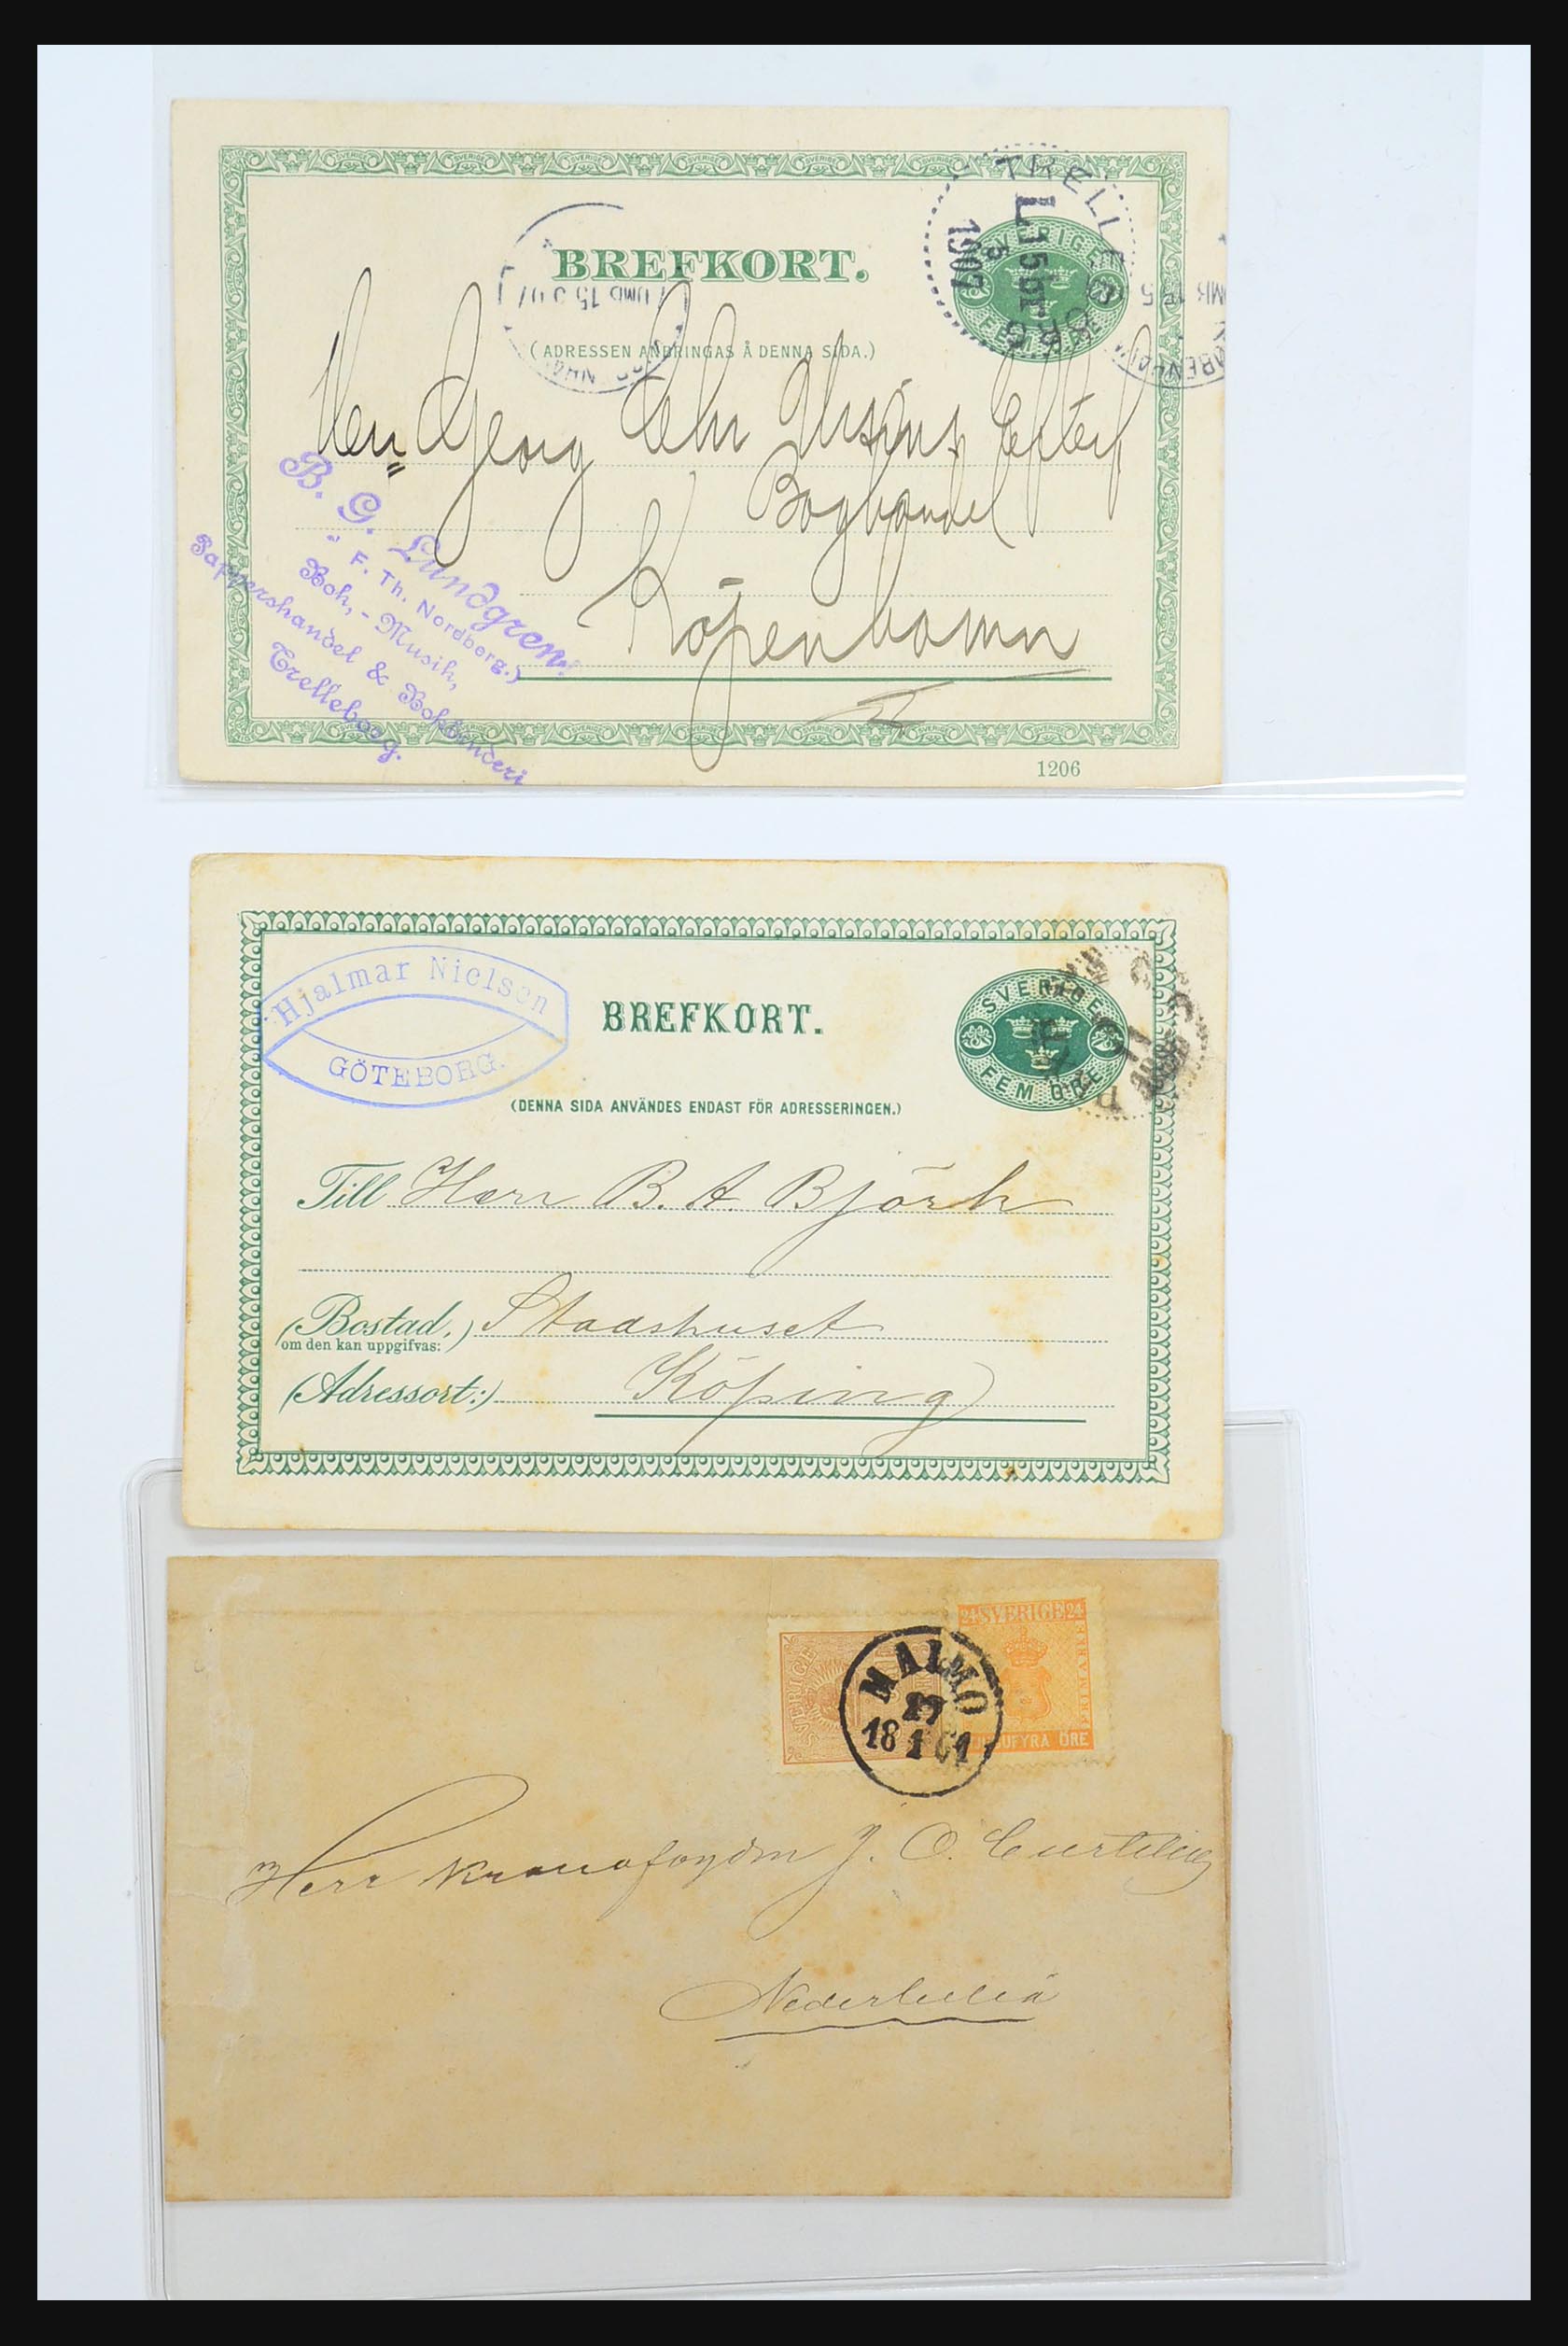 BREFKORT.
(ADRESSEN ANBRINGAS Å DENNA SIDA.)
SVERIGE
FEM ÖRE
TRELLEBORG
L 15
5
1907
Herr Georg Chr Ursins Efterf
Boghandel
Köpenhamn
B. G. Lundgren.
F. Th. Nordberg.)
Bok,- Musik,
Pappershandel & Bokbinderi
Trelleborg.
1206
Hjalmar Nielsen
GÖTEBORG.
BREFKORT.
SVERIGE
FEM ÖRE
(DENNA SIDA ANVÄNDES ENDAST FÖR ADRESSERINGEN.)
Till Herr B. A. Björk
(Bostad,) Stadshuset
om den kan uppgifvas:
(Adressort:) Köping
SVERIGE
24 SVERIGE 24
FRIMÄRKE
ÖRE
MALMÖ
18 1 61
Herr J. O.
Nederluleå